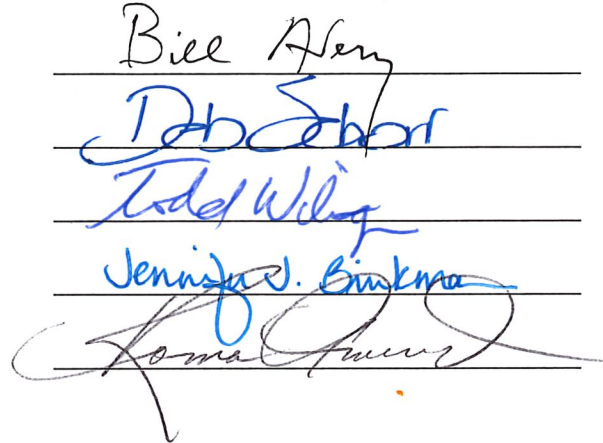 Bill Avery
Deb Schorr
Todd Wiltgen
Jennifer J. Brinkman
Roma Amundson